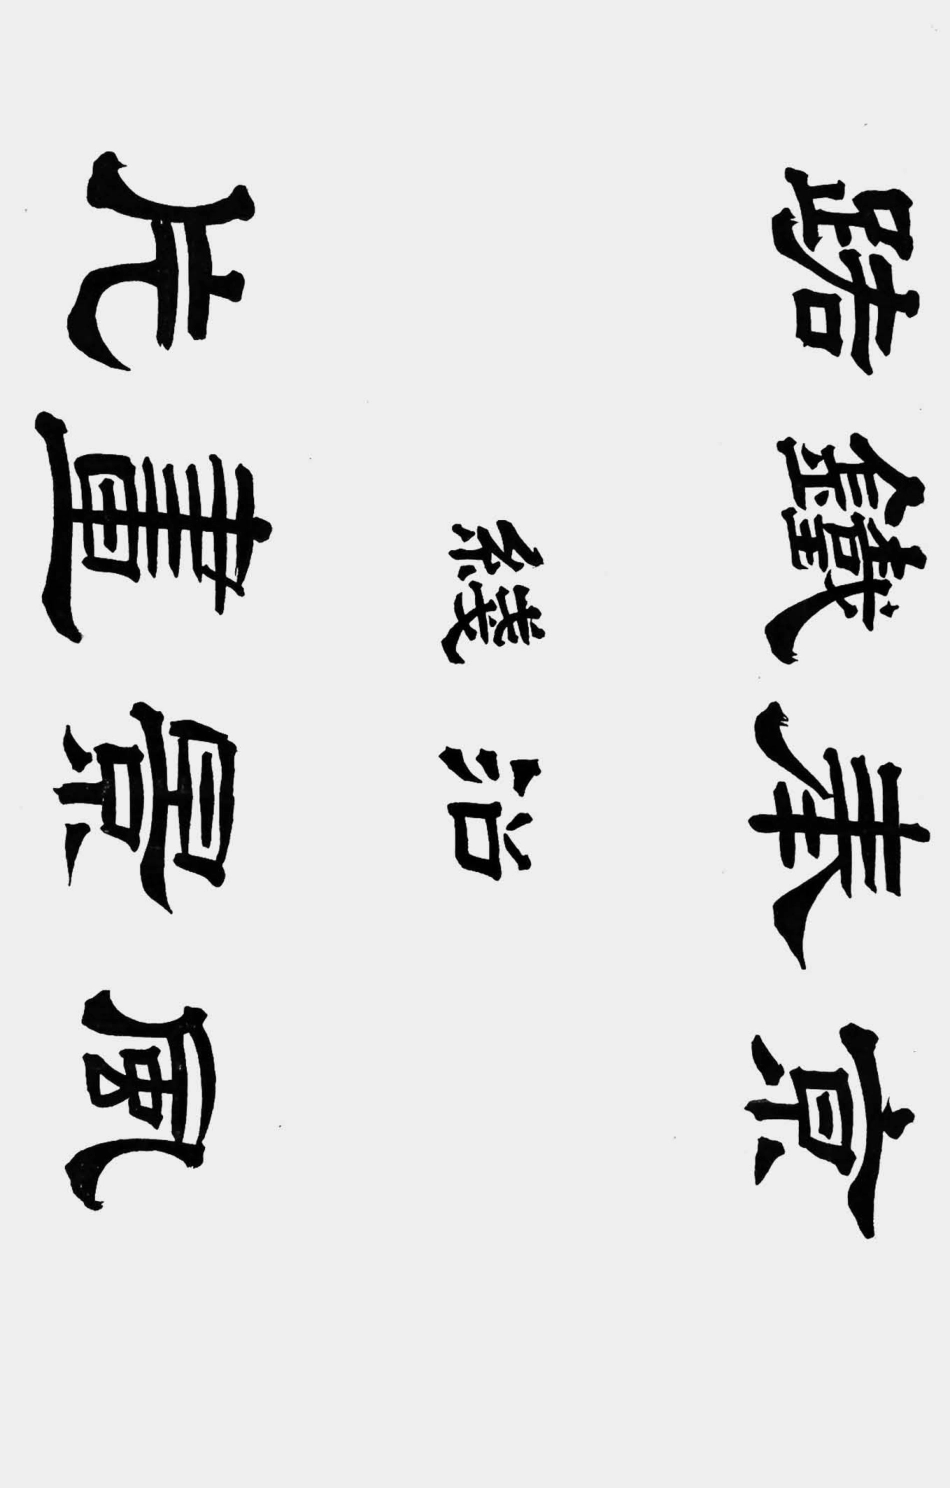 京奉鐵路
沿綫
風景畫片